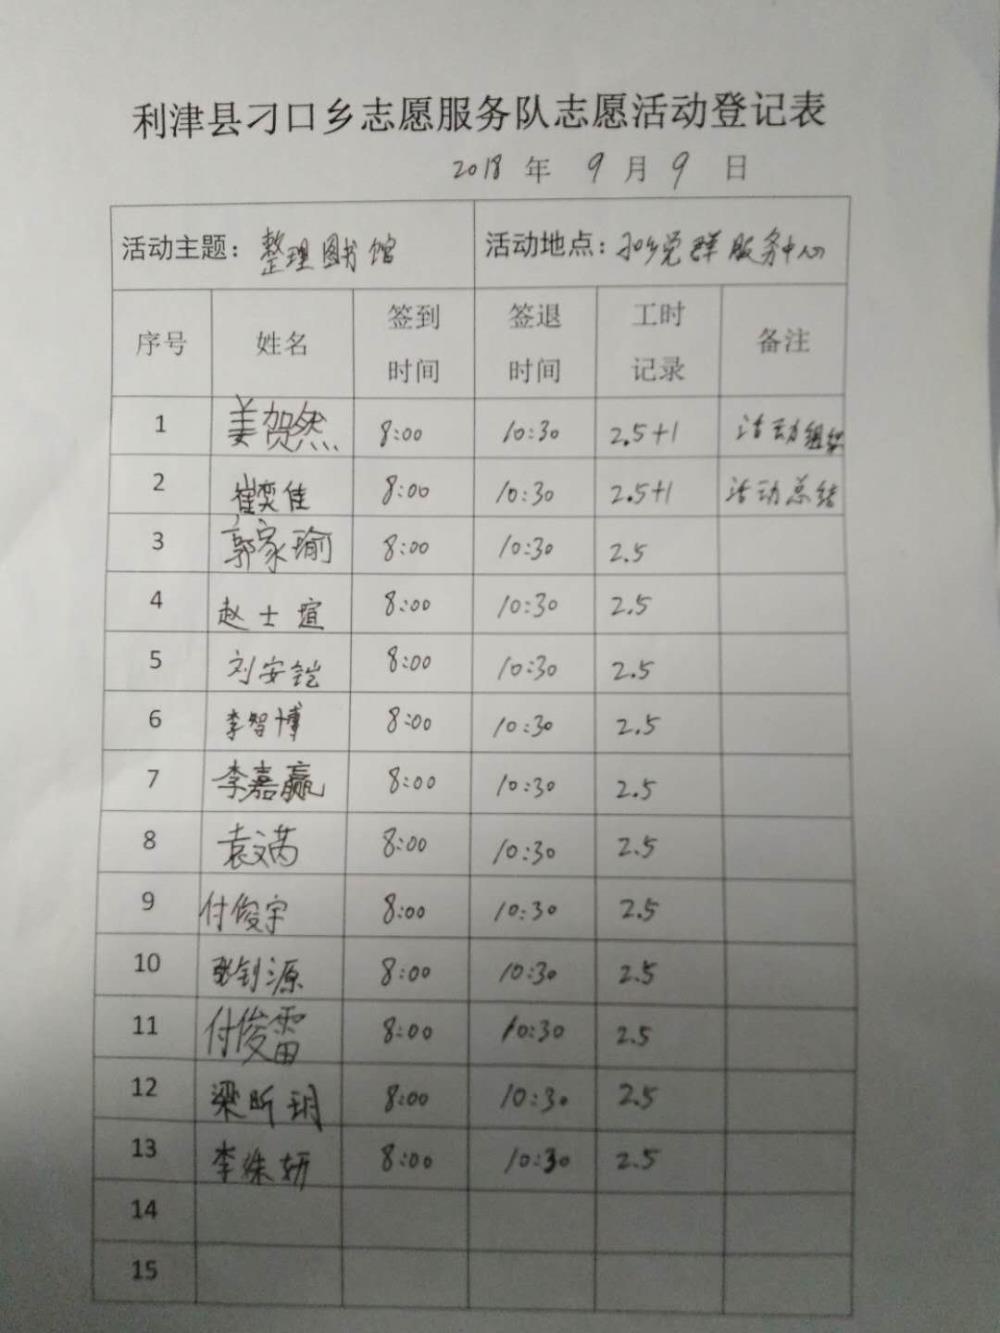 利津县刁口乡志愿服务队志愿活动登记表
2018 年 9 月 9 日
活动主题：整理图书馆 活动地点：刁口乡党群服务中心
序号 姓名 签到时间 签退时间 工时记录 备注
1 姜贺然 8:00 10:30 2.5+1 活动组织
2 崔奕佳 8:00 10:30 2.5+1 活动总结
3 郭家瑜 8:00 10:30 2.5
4 赵士瑄 8:00 10:30 2.5
5 刘安铠 8:00 10:30 2.5
6 李智博 8:00 10:30 2.5
7 李嘉赢 8:00 10:30 2.5
8 袁文芮 8:00 10:30 2.5
9 付俊宇 8:00 10:30 2.5
10 张钊源 8:00 10:30 2.5
11 付俊雷 8:00 10:30 2.5
12 梁昕玥 8:00 10:30 2.5
13 李姝妍 8:00 10:30 2.5
14
15